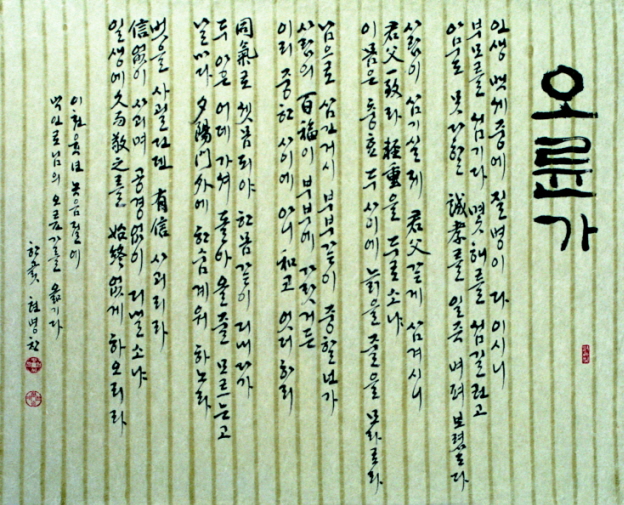 오륜가
인생 백세중에 질병이 다 이시니
부모를 섬기다 몇 해를 섬길런고
아마도 못다할 誠孝를 일즉 벼퍼 보렷로다
사람이 삼기실제 君父같게 삼겨시니
君父一致라 輕重을 두로소냐
이몸은 충효 두 사이에 늙을 줄을 모라로라
남으로 삼긴거시 부부같이 중할넌가
사람의 百福이 부부에 가잣거든
이리 중한 사이에 아니 和코 엇더하리
同氣로 셋 몸되야 한 몸같이 디내다가
두 아은 어데 가셔 돌아 올 줄 모르는고
날마다 夕陽門外에 한숨계워 하노라
벗을 사괼딘댄 有信 사괴리라
信없이 사괴며 공경없이 디낼소냐
일생에 久而敬之를 始終없게 하오리라
이천육년 녹음절에
박인로님의 오륜가를 옮기다
현병찬